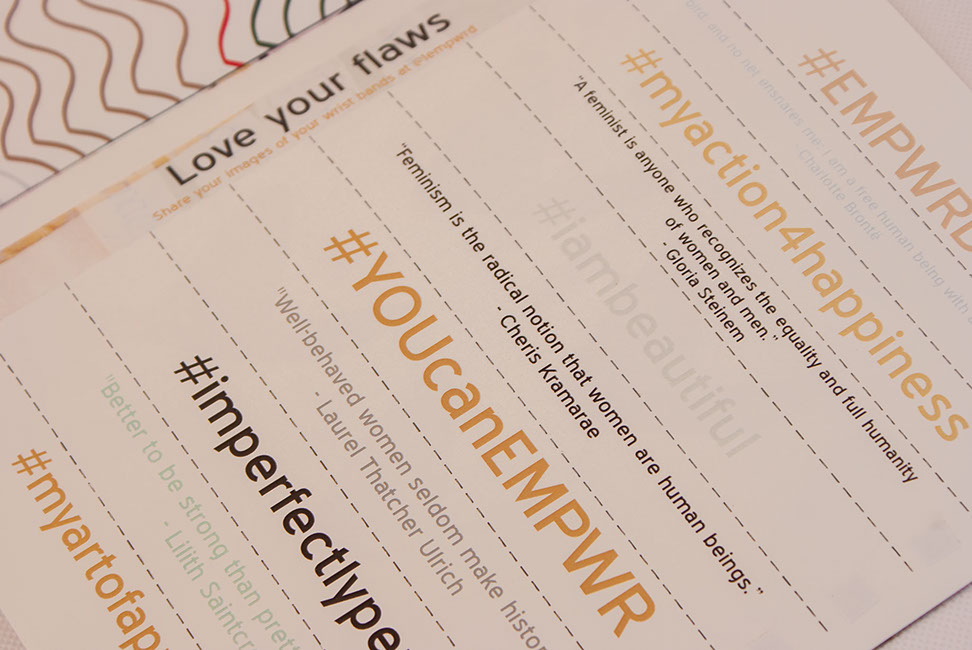 Love your flaws
Share your images of your wrist bands at #Iempwrd
#myartofap
"Better to be strong than pretty
- Lilith Saintcr
#imperfectlype
"Well-behaved women seldom make histo
- Laurel Thatcher Ulrich
#YOUcanEMPWR
"Feminism is the radical notion that women are human beings."
- Cheris Kramarae
#iambeautiful
"A feminist is anyone who recognizes the equality and full humanity
of women and men."
- Gloria Steinem
#myaction4happiness
bird and no net ensnares me: I am a free human being with
- Charlotte Brontë
#EMPWRD